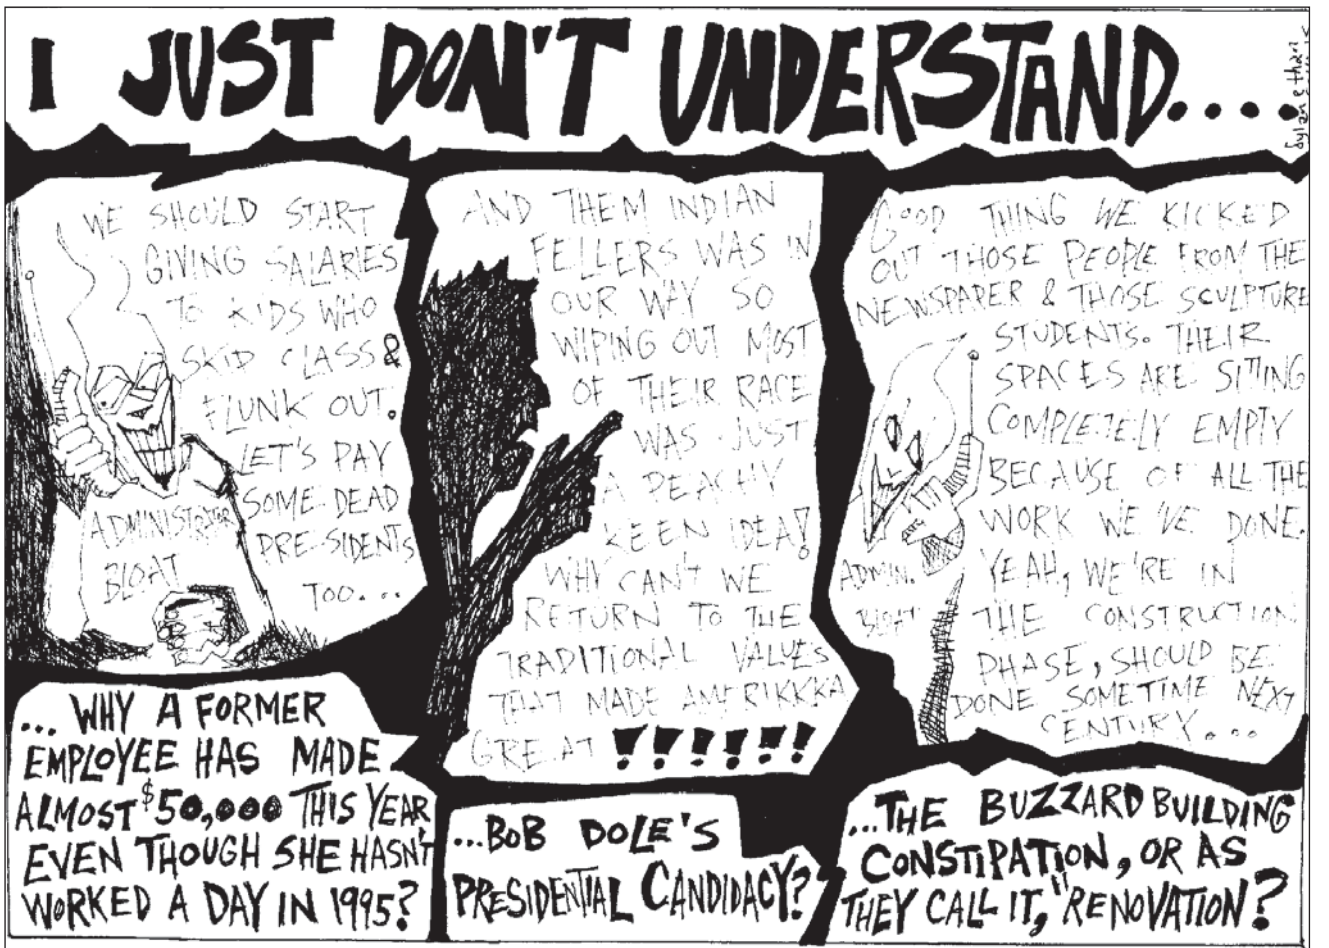 I JUST DON'T UNDERSTAND....
dylan ethan
WE SHOULD START
GIVING SALARIES
TO KIDS WHO
SKID CLASS &
FLUNK OUT.
LET'S PAY
SOME DEAD
PRESIDENTS
TOO...
ADMINISTRATOR
BLOAT
... WHY A FORMER
EMPLOYEE HAS MADE
ALMOST $50,000 THIS YEAR
EVEN THOUGH SHE HASN'T
WORKED A DAY IN 1995?
AND THEM INDIAN
FELLERS WAS IN
OUR WAY SO
WIPING OUT MOST
OF THEIR RACE
WAS JUST
A PEACHY
KEEN IDEA!
WHY CAN'T WE
RETURN TO THE
TRADITIONAL VALUES
THAT MADE AMERIKKKA
GREAT !!!!!!
...BOB DOLE'S
PRESIDENTIAL CANDIDACY?
GOOD THING WE KICKED
OUT THOSE PEOPLE FROM THE
NEWSPAPER & THOSE SCULPTURE
STUDENTS. THEIR
SPACES ARE SITTING
COMPLETELY EMPTY
BECAUSE OF ALL THE
WORK WE'VE DONE.
YEAH, WE'RE IN
THE CONSTRUCTION
PHASE, SHOULD BE
DONE SOMETIME NEXT
CENTURY....
ADMIN.
BLOAT
...THE BUZZARD BUILDING
CONSTIPATION, OR AS
THEY CALL IT, "RENOVATION?